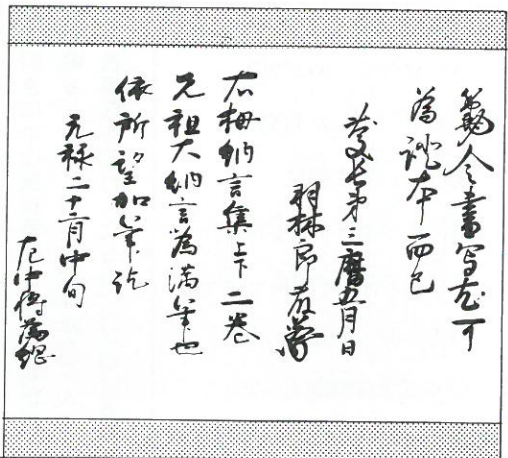 令書写尤可
為證本而已
慶長第三暦五月日
羽林郎
右帥納言集上下二巻
元祖大納言為満筆也
依所望加筆訖
元禄二十二月中旬
左中将為綱